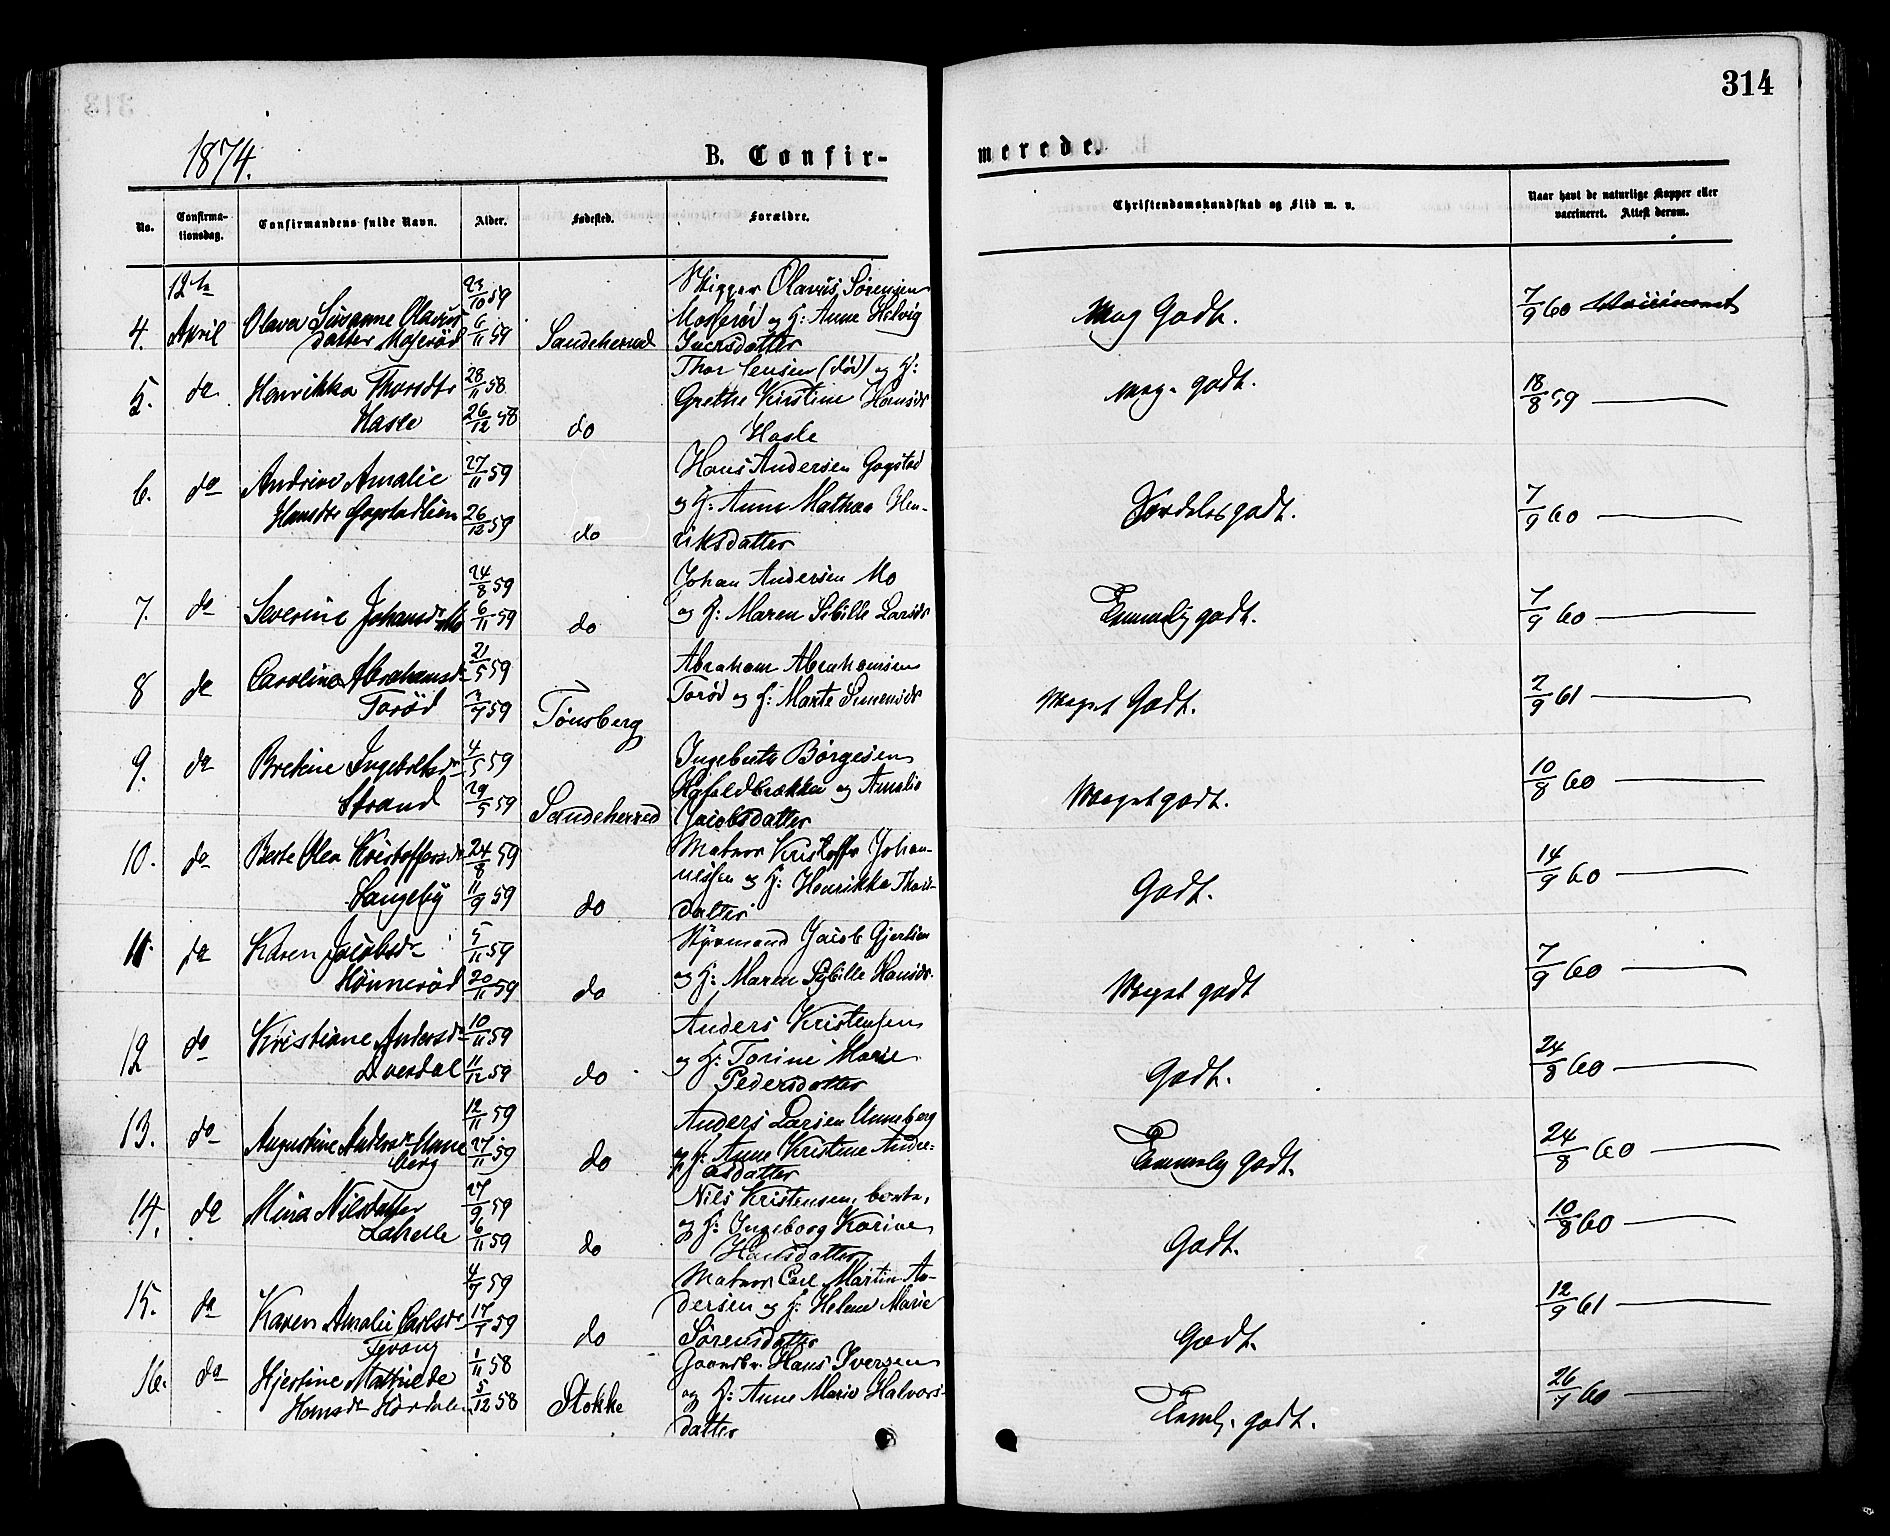 314
1874.
B. Confir-
merede.
No.
Confirma-
tionsdag.
Confirmandens fulde Navn.
Alder.
Fødested.
Forældre.
Christendomskundskab og Flid m. v.
Naar havt de naturlige Kopper eller
vaccineret. Attest derom.
12te 23/10 59 Skipper Olavus Sørensen
4. April Olava Susanne Olavus
datter Moserød 6/11 59 Sandeherred Moserød og H: Anne Helvig
Iversdatter Meg Godt. 7/9 60 Vaccineret
5. do Henrikka Thorsdtr 28/11 58 Thor Jensen (død) og H:
Hasle 26/12 58 do Grethe Kirstine Hansdr
Hasle meg. godt. 18/8 59 —
6. do Andrine Amalie 27/11 59 Hans Andersen Gogstad
Hansdtr Gogstadlien 26/12 59 do og H: Anne Mathea Hen-
riksdatter Særdeles godt. 7/9 60 —
7. do Severine Johansdr Mo 24/8 59 6/11 59 do Johan Andersen Mo
og H: Maren Sibille Larsdr Temmelig godt. 7/9 60 —
8 do Caroline Abrahamsdr 21/5 59 Abraham Abrahamsen
Torød 3/7 59 Tønsberg Torød og H: Marte Simensdr Meget Godt. 2/9 61 —
9. do Bretine Ingebretsdr 4/5 59 Ingebrett Børgesen
Strand 29/5 59 Sandeherred og Amalie
Jacobsdatter Meget godt. 10/8 60 —
10. do Berte Olea Kristoffersdr 24/8 59 Matros Kristoffer Johan-
Langeby 11/9 59 do nessen og H: Henrikke Thors-
datter Godt. 14/9 60 —
11. do Karen Jacobsdr 5/11 59 Styrmand Jacob Gjertsen
Hønnerød 20/11 59 do og H: Maren Sybille Hansdr. Meget godt 7/9 60 —
12 do Kristiane Andersdr 10/11 59 Anders Kristensen
Dverdal 11/12 59 do og H: Torine Marie
Pedersdatter Godt. 24/8 60 —
13. do Augustine Andersdr Unne
berg 12/11 59 27/11 59 do Anders Larsen Unneberg
og H: Anne Kristine Andre-
asdatter Temmelig godt. 24/8 60 —
14. do Mina Nilsdatter 27/9 59 Nils Kristensen, borte,
Lahelle 6/11 59 do og H: Ingeborg Karine
Hansdatter Godt. 10/8 60 —
15. do Karen Amalie Carlsdr 4/7 59 Matros Carl Martin An-
Fevang 17/7 59 do dersen og H: Helene Marie
Sørensdatter Godt. 12/9 61 —
16. do Hjertine Mathilde 1/11 58 Gaardbr. Hans Iversen
Hansdr 5/12 58 Stokke og H: Anne Marie Halvors-
datter Temlg. godt. 26/7 60 —